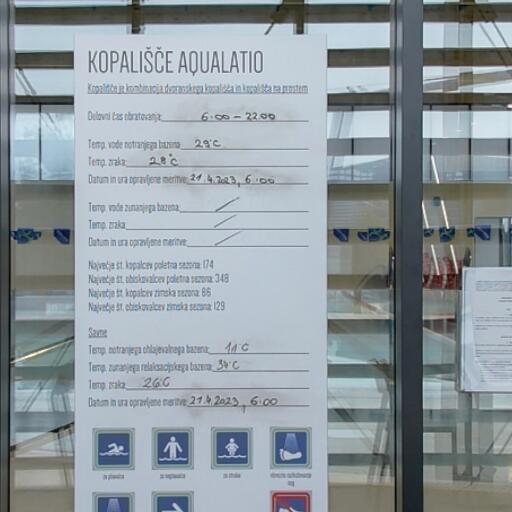 KOPALIŠČE AQUALATIO
Kopališče je kombinacija dvoranskega kopališča in kopališča na prostem
Delovni čas obratovanja: 6:00 - 22:00
Temp. vode notranjega bazena: 29°C
Temp. zraka: 28°C
Datum in ura opravljene meritve: 21.4.2023, 6:00
Temp. vode zunanjega bazena: /
Temp. zraka: /
Datum in ura opravljene meritve: /
Največje št. kopalcev poletna sezona: 174
Največje št. obiskovalcev poletna sezona: 348
Največje št. kopalcev zimska sezona: 86
Največje št. obiskovalcev zimska sezona: 129
Savne
Temp. notranjega ohlajevalnega bazena: 11°C
Temp. zunanjega relaksacijskega bazena: 34°C
Temp. zraka: 26°C
Datum in ura opravljene meritve: 21.4.2023, 6:00
za plavalce
za neplavalce
za otroke
obvezno razkuževanje
nog